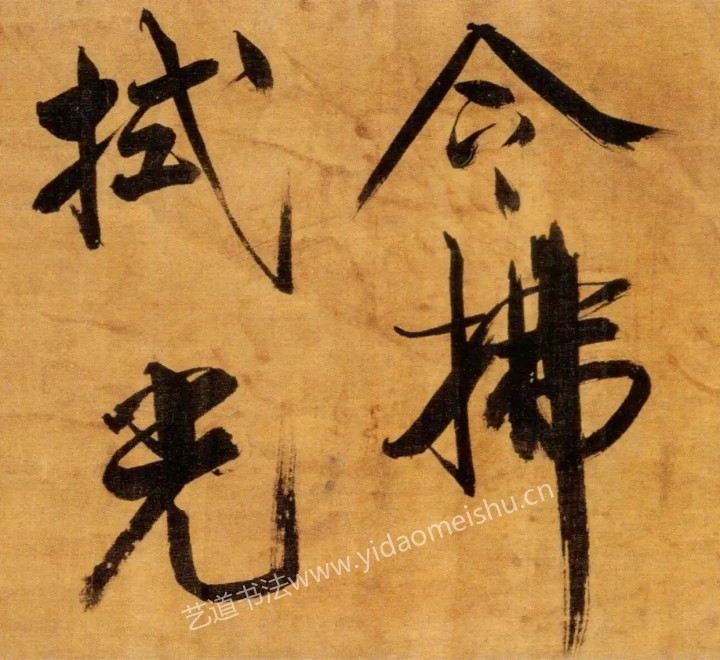 令拂
拭光
艺道书法www.yidaomeishu.cn